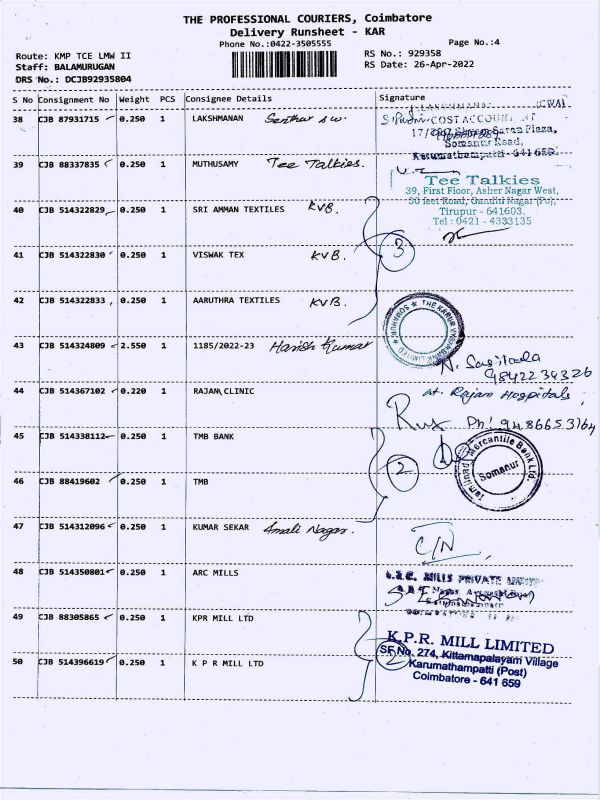 THE PROFESSIONAL COURIERS, Coimbatore
Delivery Runsheet - KAR
Phone No.:0422-3505555
Page No.:4
Route: KMP TCE LMW II
RS No.: 929358
Staff: BALAMURUGAN
RS Date: 26-Apr-2022
DRS No.: DCJB92935804
S No Consignment No Weight PCS Consignee Details Signature
38 CJB 87931715 0.250 1 LAKSHMANAN
COST ACCOUNTANT
Plaza,
Somanur Road,
Karumathampatti - 641 659
39 CJB 88337835 0.250 1 MUTHUSAMY Tee Talkies.
Tee Talkies
39, First Floor, Asher Nagar West,
50 feet Road, Gandhi Nagar (Po),
Tirupur - 641603.
Tel : 0421 - 4333135
40 CJB 514322829 0.250 1 SRI AMMAN TEXTILES KVB.
41 CJB 514322830 0.250 1 VISWAK TEX KVB.
3
42 CJB 514322833 0.250 1 AARUTHRA TEXTILES KVB.
THE KARUR VYSYA BANK LIMITED
SOMANUR
43 CJB 514324809 2.550 1 1185/2022-23 Harish Kumar
9842234326
44 CJB 514367102 0.220 1 RAJAM CLINIC
at. Rajam Hospitals
Ph: 9486653164
45 CJB 514338112 0.250 1 TMB BANK
1
2
Tamilnad Mercantile Bank Ltd.
Somanur
46 CJB 88419602 0.250 1 TMB
47 CJB 514312096 0.250 1 KUMAR SEKAR Amali Nagar.
C/N
48 CJB 514350801 0.250 1 ARC MILLS
MILLS PRIVATE LIMITED
49 CJB 88305865 0.250 1 KPR MILL LTD
50 CJB 514396619 0.250 1 K P R MILL LTD
2
K.P.R. MILL LIMITED
SF No. 274, Kittamapalayam Village
Karumathampatti (Post)
Coimbatore - 641 659